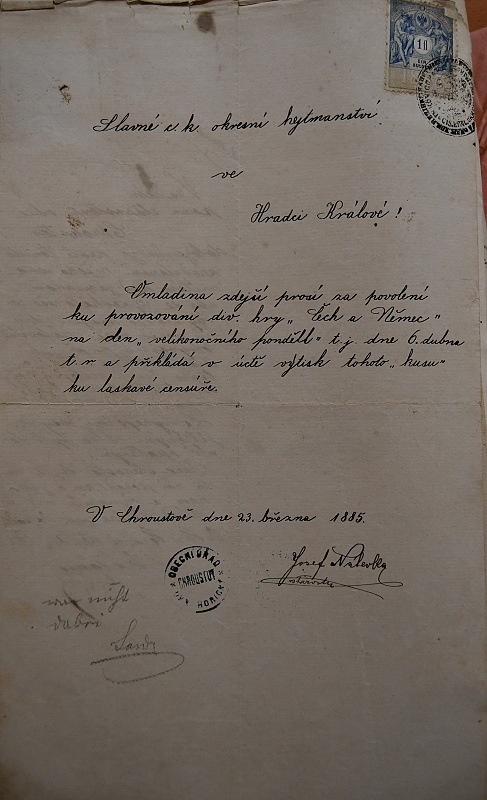 1 fl
Slavné c. k. okresní hejtmanství
ve
Hradci Králové!
Omladina zdejší prosí za povolení
ku provozování div. hry „Čech a Němec"
na den „velikonočního pondělí" t. j. dne 6. dubna
t. r. a přikládá v úctě výtisk tohoto „kusu"
ku laskavé censúře.
V Chroustově dne 23. března 1885.
OBECNÍ ÚŘAD
CHROUSTOV
Josef
starosta
war nicht
dabei